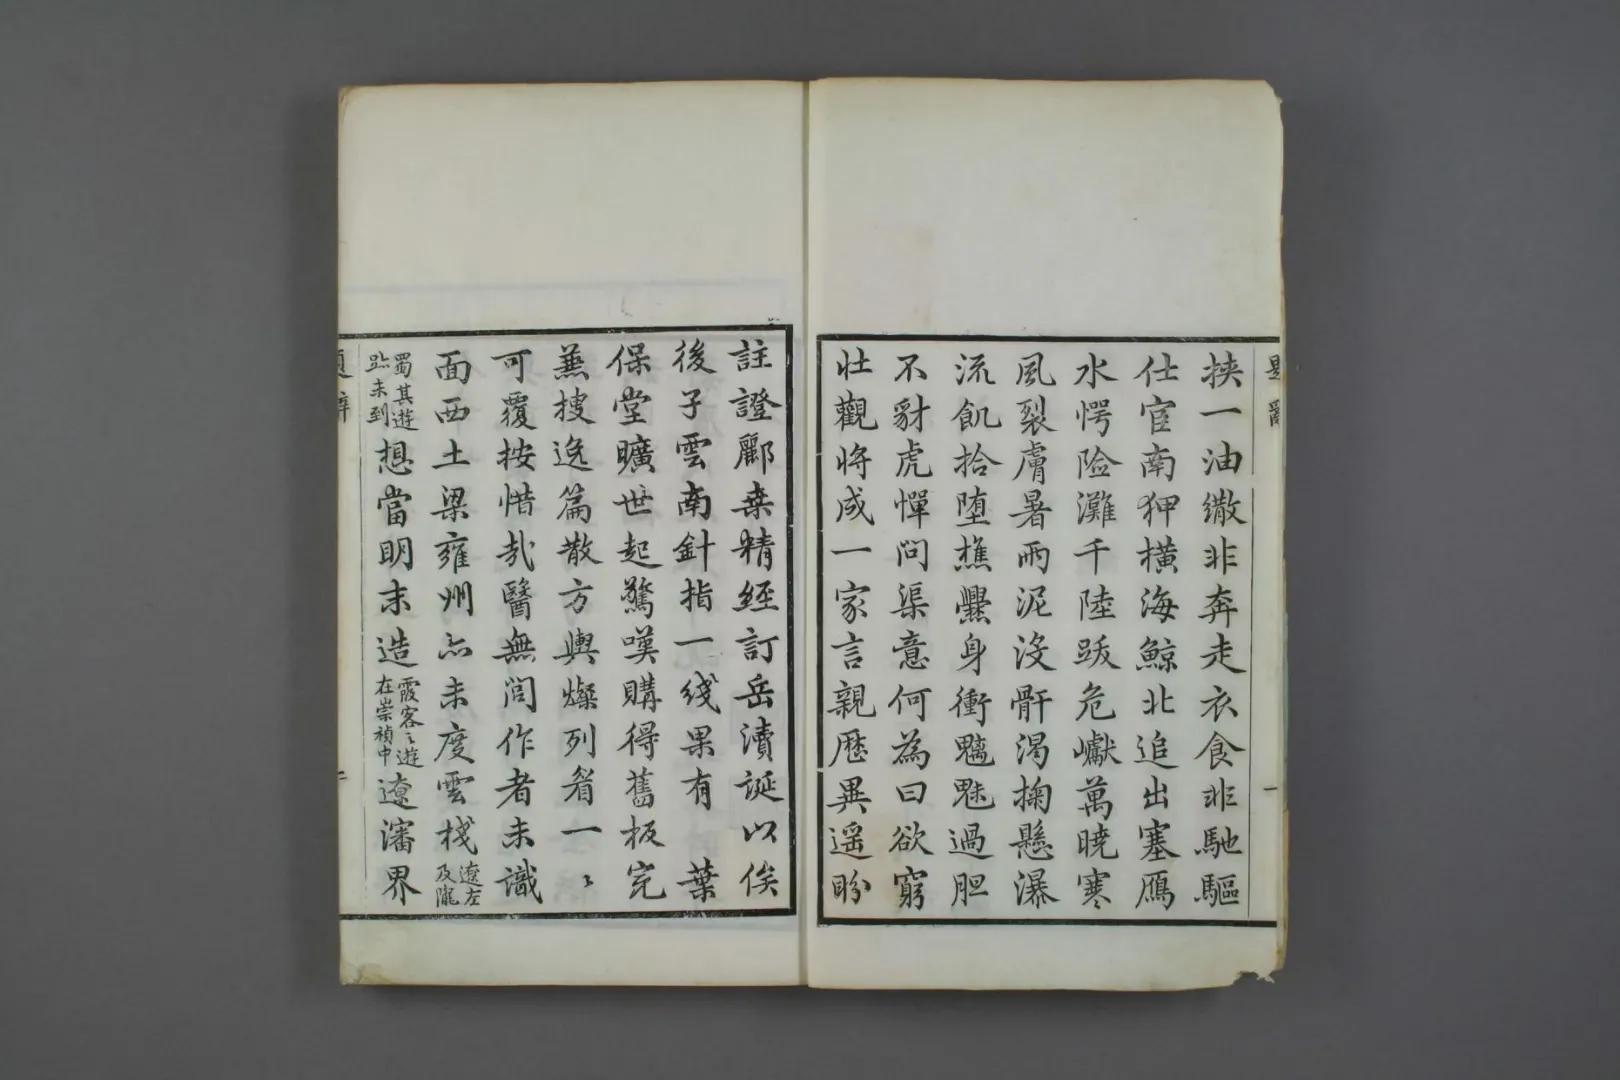 挾一油繖非奔走衣食非馳驅
仕宦南狎橫海鯨北追出塞鴈
水愕險灘千陸跋危巘萬曉寒
風裂膚暑雨泥沒骭渴掬懸瀑
流飢拾墮樵爨身衝魑魅過胆
不豺虎憚問渠意何為曰欲窮
壯觀將成一家言親歷異遥盼
註證酈桒精經訂岳瀆誕以俟
後子雲南針指一綫果有葉
保堂曠世起驚嘆購得舊板完
蕪摟逸篇散方輿燦列眉一〻
可覆按惜哉醫無閭作者未識
面西土梁雍州亦未度雲棧遼左及隴
蜀其遊跡未到想當明末造霞客之遊在崇禎中遼瀋界
題辭
一